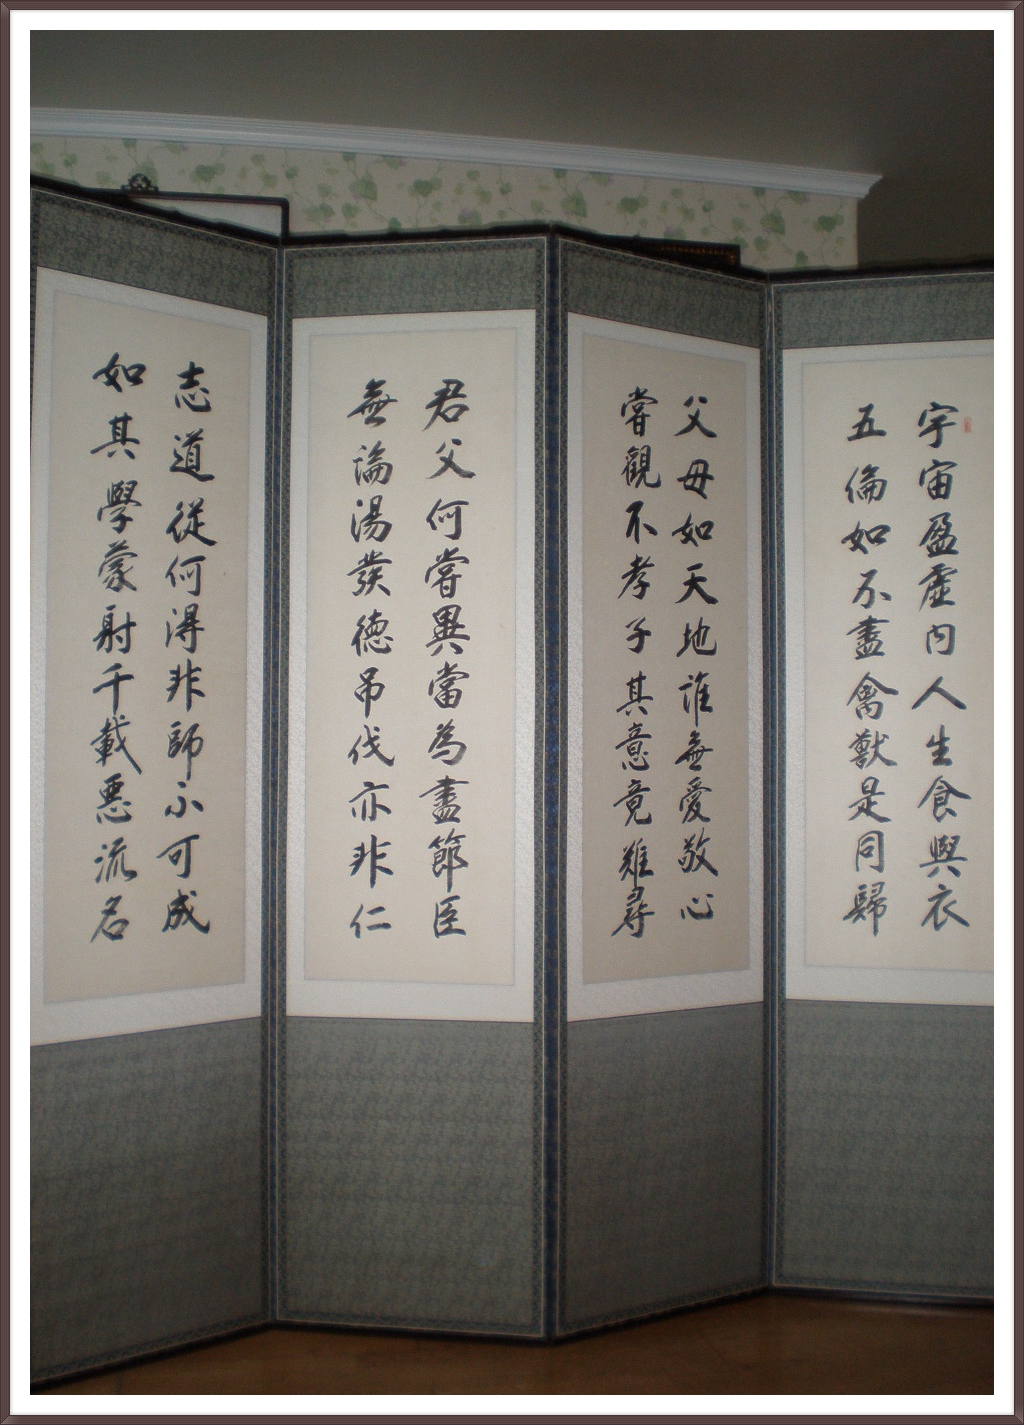 宇宙盈虛內人生食與衣
五倫如不盡禽獸是同歸
父母如天地誰無愛敬心
嘗觀不孝子其意竟難尋
君父何嘗異當為盡節臣
無論湯發德吊伐亦非仁
志道從何得非師不可成
如其學蒙射千載惡流名